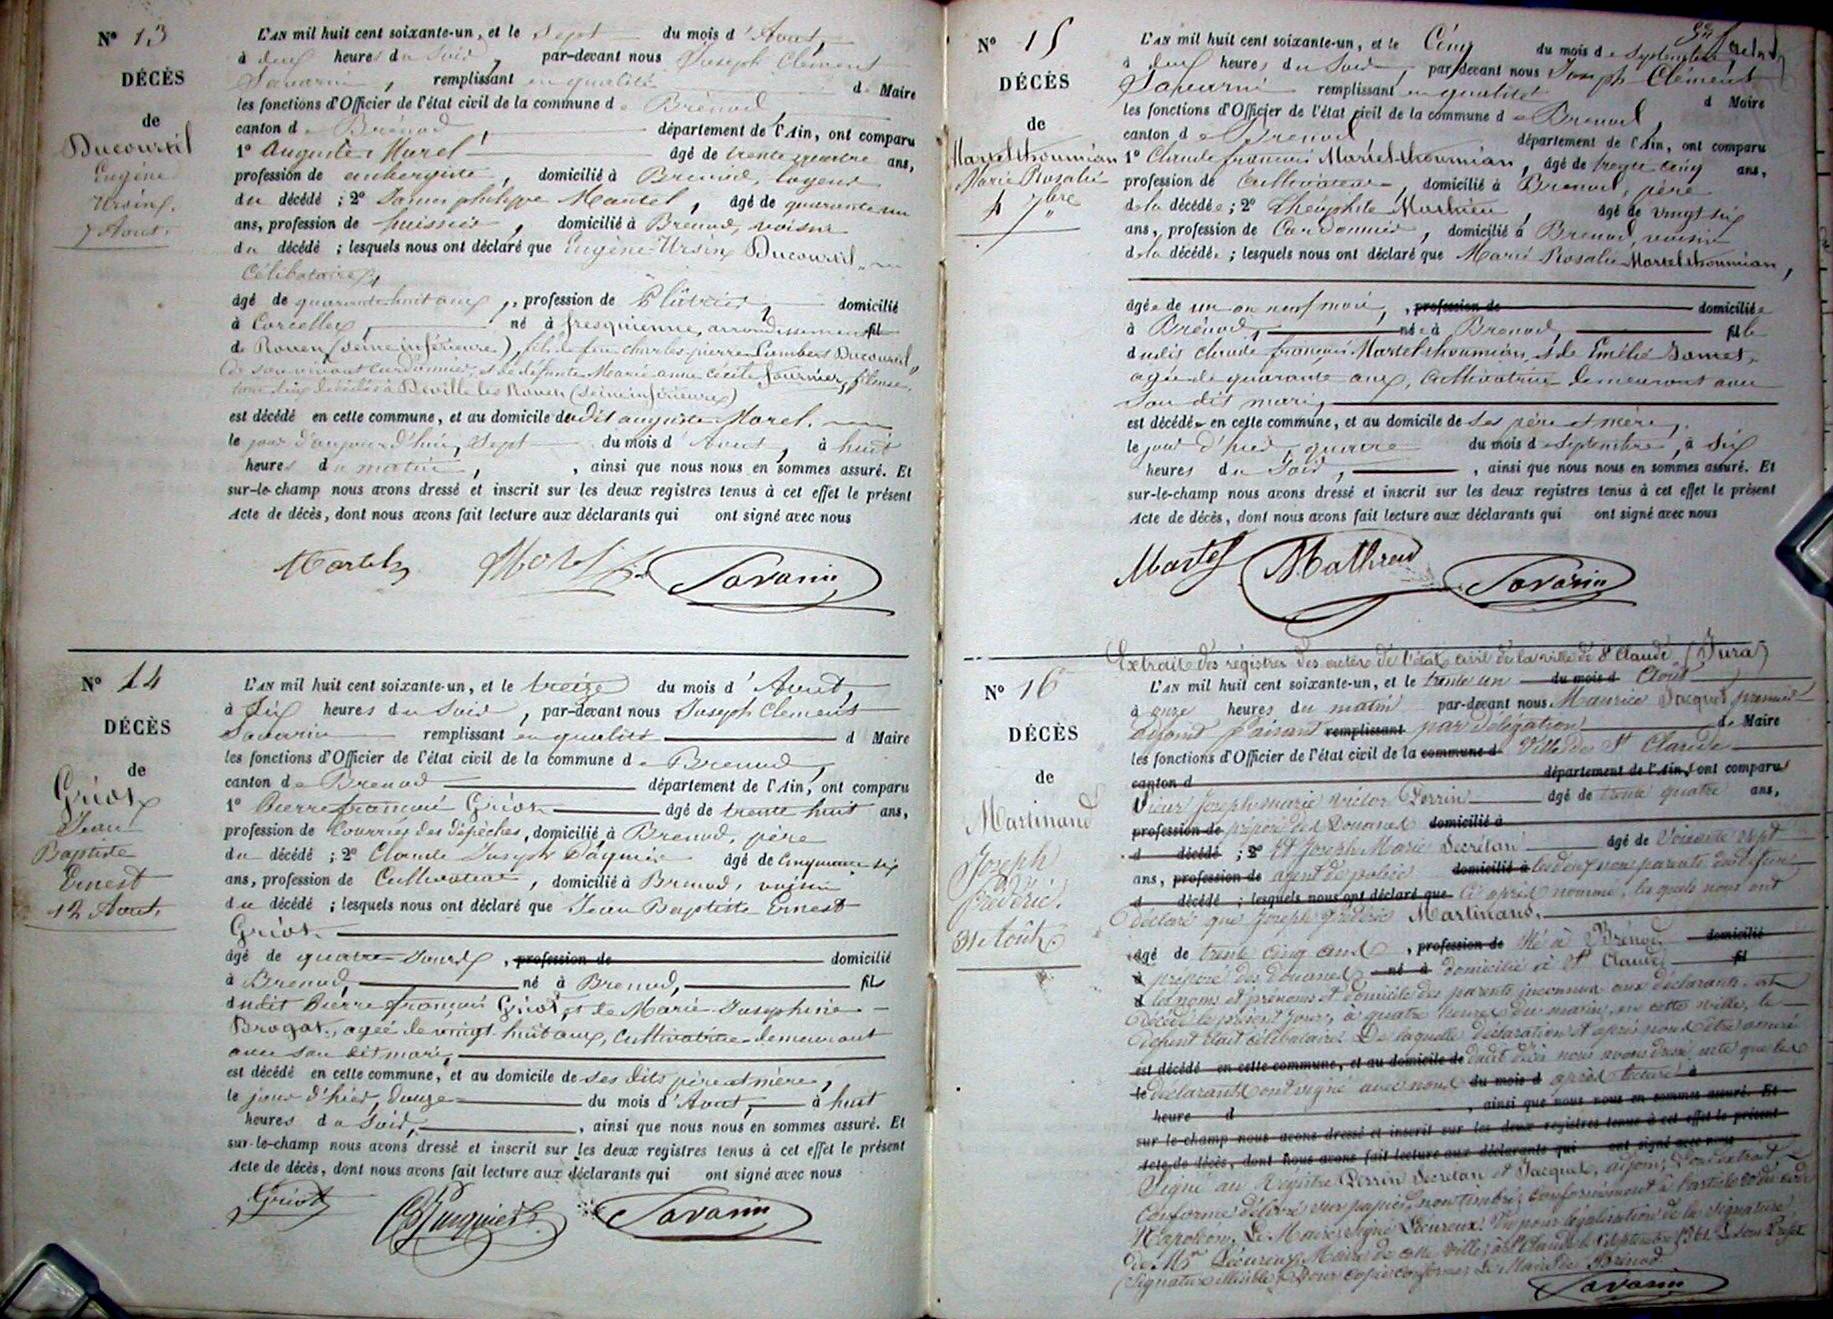 Nº 13
DÉCÈS
de
Ducourtil
Eugène
Ursin,
7 Aout.
L'AN mil huit cent soixante-un, et le sept du mois d'Aout,
à deux heures du Soir, par-devant nous Joseph Clément
Savarin, remplissant en qualité de Maire
les fonctions d'Officier de l'état civil de la commune de Brénod,
canton de Brénod, département de l'Ain, ont comparu
1º Auguste Morel âgé de trente quatre ans,
profession de aubergiste, domicilié à Brénod, logeur
du décédé ; 2º James philippe Martel, âgé de quarante un
ans, profession de huissier, domicilié à Brenod, voisin
du décédé ; lesquels nous ont déclaré que Eugène Ursin Ducourtil
Célibataire,
âgé de quarante huit ans, profession de Plâtrier, domicilié
à Corcelles, né à fresquienne, arrondissement fil
de Rouen (Seine inférieure), fils de feu Charles pierre Lambert Ducourtil,
de son vivant Cordonnier, et de défunte Marie anne Cécile fournier, fileuse,
tous deux décédés à Déville les Rouen (Seine inférieure)
est décédé en cette commune, et au domicile dudit auguste Morel.
le jour d'aujourd'hui, Sept du mois d'Aout, à huit
heures du matin, , ainsi que nous nous en sommes assuré. Et
sur-le-champ nous avons dressé et inscrit sur les deux registres tenus à cet effet le présent
Acte de décès, dont nous avons fait lecture aux déclarants qui ont signé avec nous
Martel Morel Savarin
Nº 14
DÉCÈS
de
Griot
Jean
Baptiste
Ernest
12 Aout.
L'AN mil huit cent soixante-un, et le treize du mois d'Aout,
à Six heures du Soir, par-devant nous Joseph Clément
Savarin remplissant en qualité d Maire
les fonctions d'Officier de l'état civil de la commune de Brenod,
canton de Brenod département de l'Ain, ont comparu
1º Pierre françois Griot âgé de trente huit ans,
profession de Courrier des dépêches, domicilié à Brenod, père
du décédé ; 2º Claude Joseph Pâquier âgé de Cinquante six
ans, profession de Cultivateur, domicilié à Brenod, voisin
du décédé ; lesquels nous ont déclaré que Jean Baptiste Ernest
Griot.
âgé de quatre Jours, profession de domicilié
à Brenod, né à Brenod, fils
dudit Pierre françois Griot, et de Marie Josephine
Brogat, agée de vingt huit ans, Cultivatrice demeurant
avec son dit mari,
est décédé en cette commune, et au domicile de ses dits père et mère,
le jour d'hier, douze du mois d'Aout, à huit
heures du Soir, , ainsi que nous nous en sommes assuré. Et
sur-le-champ nous avons dressé et inscrit sur les deux registres tenus à cet effet le présent
Acte de décès, dont nous avons fait lecture aux déclarants qui ont signé avec nous
Griot Savarin
Nº 15
DÉCÈS
de
Martel thoumian
Marie Rosalie
4 7bre
L'AN mil huit cent soixante-un, et le Cinq du mois de Septembre,
à deux heures du Soir, par-devant nous Joseph Clément
Savarin remplissant en qualité d Maire
les fonctions d'Officier de l'état civil de la commune de Brenod,
canton de Brenod département de l'Ain, ont comparu
1º Claude françois Martel thoumian, âgé de trente cinq ans,
profession de Cultivateur, domicilié à Brenod, père
de la décédée ; 2º Théophile Mathieu, âgé de vingt six
ans, profession de Cordonnier, domicilié à Brenod, voisin
de la décédée ; lesquels nous ont déclaré que Marie Rosalie Martel thoumian,
âgée de un an neuf mois, profession de domiciliée
à Brénod, née à Brenod, fille
dudit Claude françois Martel thoumian, et de Emélie Jamet,
agée de quarante ans, Cultivatrice demeurant avec
son dit mari,
est décédée en cette commune, et au domicile de Ses père et mère,
le jour d'hier, quatre du mois de Septembre, à Six
heures du Soir, , ainsi que nous nous en sommes assuré. Et
sur-le-champ nous avons dressé et inscrit sur les deux registres tenus à cet effet le présent
Acte de décès, dont nous avons fait lecture aux déclarants qui ont signé avec nous
Martel Mathieu Savarin
Extrait des régistres des actes de l'état civil de la ville de St Claude (Jura)
Nº 16
DÉCÈS
de
Martinand
Joseph
frédéric.
31 Août.
L'AN mil huit cent soixante-un, et le trente un du mois d Août
à onze heures du matin par-devant nous Maurice Jacquet premier
adjoint faisant remplissant par délégation de Maire
les fonctions d'Officier de l'état civil de la commune d Ville de St Claude
canton d département de l'Ain, ont comparu
Sieur Joseph marie victor Perrin âgé de trente quatre ans,
profession de préposé des Douanes domicilié à
d décédé ; 2º et Joseph Marie Secretan âgé de Soixante sept
ans, profession de agent de police domicilié à les deux non parents du défunt
d décédé ; lesquels nous ont déclaré que Ci après nommé, lesquels nous ont
déclaré que Joseph frédéric Martinand,
âgé de trente cinq ans, profession de Né à Brénod domicilié
à préposé des douanes né à domicilié à St Claude fil
d les noms et prénoms et domicile des parents inconnus aux déclarants est
Décédé le présent jour, à quatre heures du matin, en cette ville, le
défunt était célibataire. De laquelle déclaration et après nous être assuré
est décédé en cette commune, et au domicile de dudit décès nous avons dressé acte que les
le déclarants ont signé avec nous du mois d après lecture à
heure d , ainsi que nous nous en sommes assuré. Et
sur-le-champ nous avons dressé et inscrit sur les deux registres tenus à cet effet le présent
Acte de décès, dont nous avons fait lecture aux déclarants qui ont signé avec nous
Signé au Registre Perrin Secretan et Jacquet, adjoint, Pour extrait
Conforme délivré sur papier non timbré conformément à l'article 80 du code
Napoléon, Le Maire signé Lécureux. Vu pour légalisation de la signature
de Mr Lécureux Maire de cette ville, à St Claude le Septembre 1861 Le Sous Préfet
(Signature illisible) Pour copie conforme, Le Maire de Brénod
Savarin